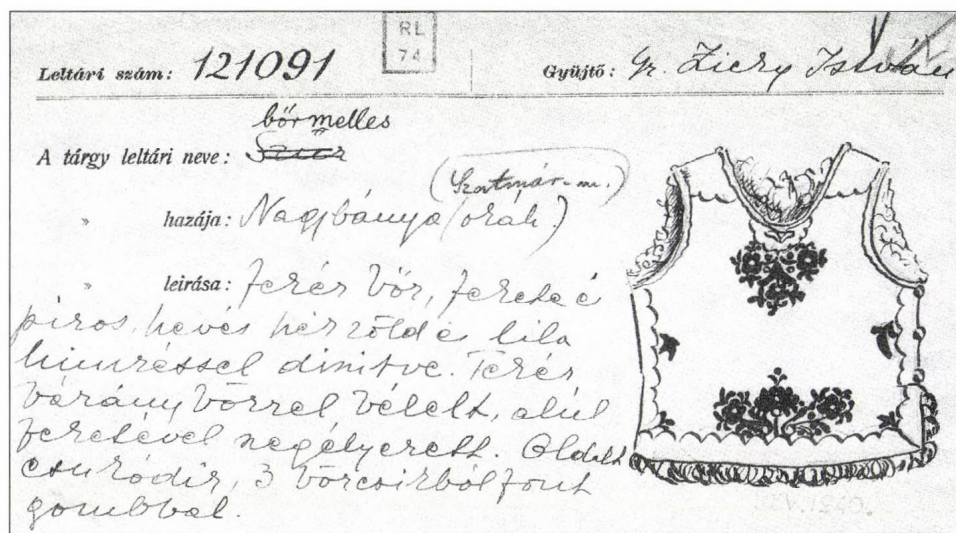 RL
74
Leltári szám: 121091
Gyüjtő: Gr. Zichy István
bőrmelles
A tárgy leltári neve: Szűr
(Szatmár-m.)
„ hazája: Nagybánya (oláh.)
„ leirása: Fehér bőr, fekete és
piros, kevés kék zöld és lila
himzéssel diszitve. Fehér
báránybőrrel bélelt, alul
feketével szegélyezett. Oldalt
csukódik, 3 bőrcsikból font
gombbal.